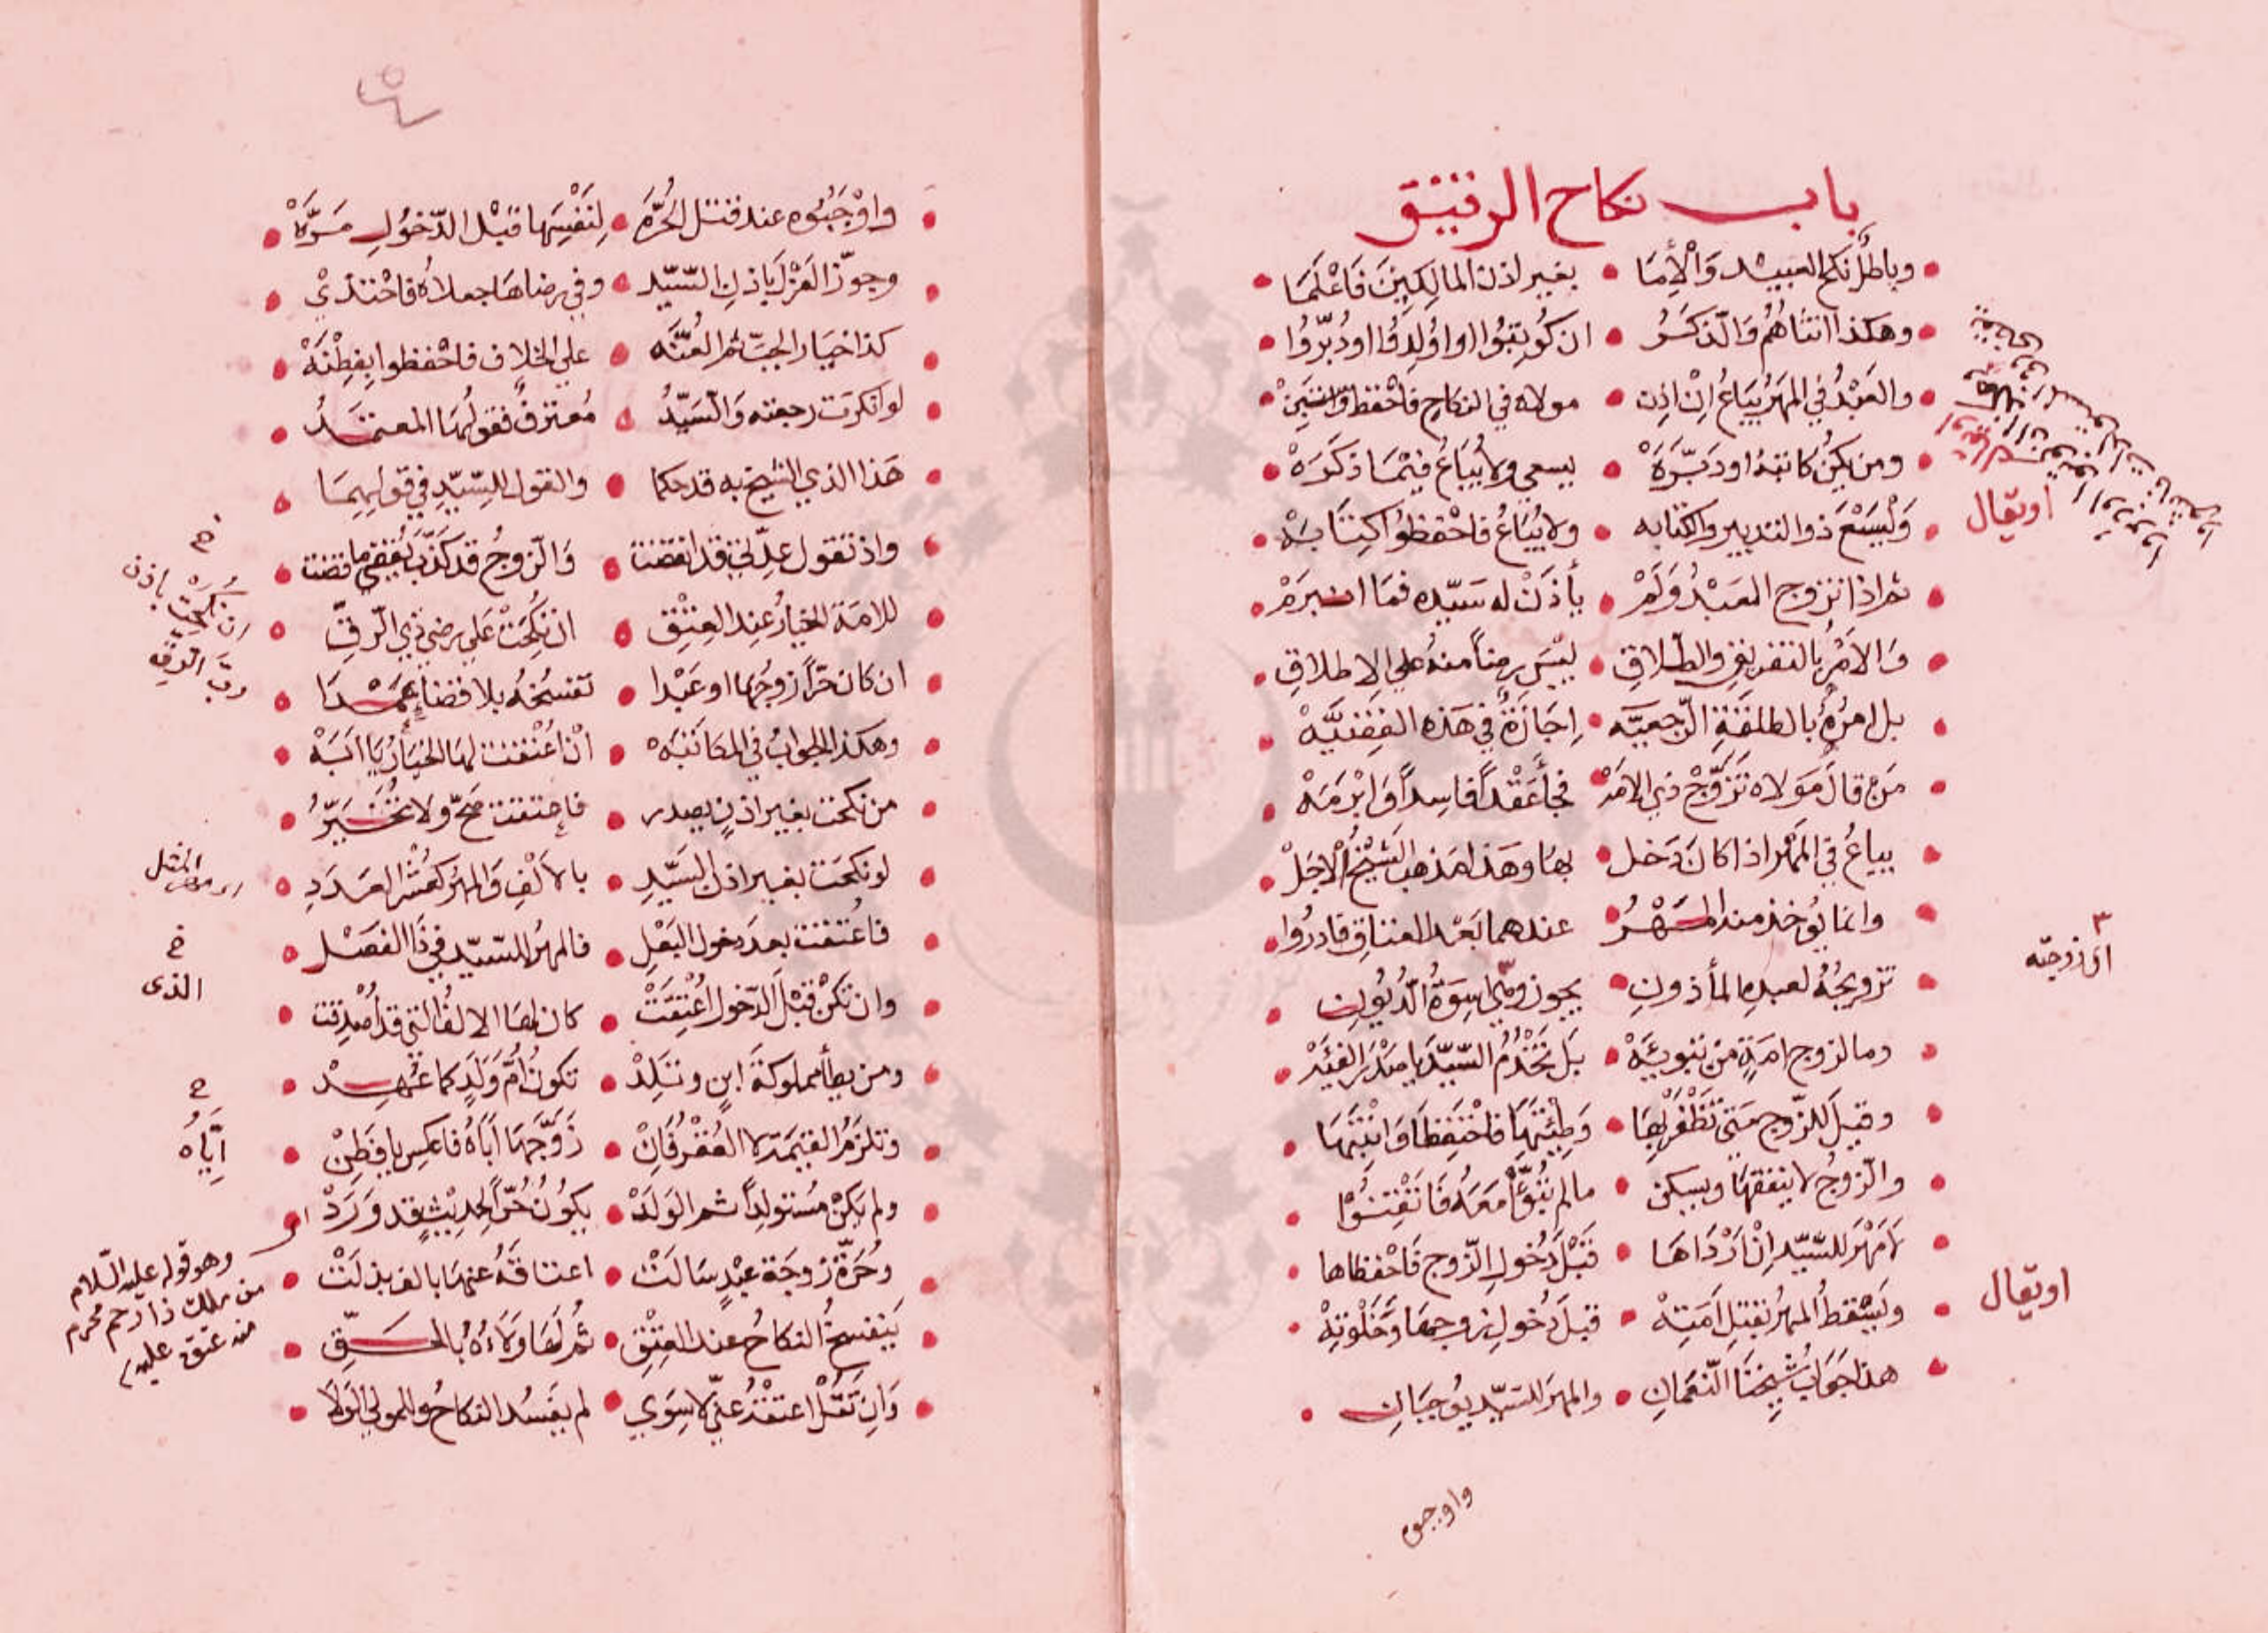 باب نكاح الرقيق
وباطل نكح العبيد والأما بغير اذن المالكين فاعلما
وهكذا انثاهم والذكر ان كوتبوا او اولدوا او دبروا
والعبد في المهر يباع ان اذن مولاه في النكاح فاحفظ
ومن يكن كاتبه او دبره يسعى ولا يباع فيما ذكره
وليسع ذو التدبير والكتابه ولا يباع فاحفظوا كتابه
ثم اذا تزوج العبد ولم يأذن له سيده فما انبرم
والامر بالتفريق والطلاق ليس رضاً منه على الاطلاق
بل امره بالطلقة الرجعيه اجازة في هذه القضيه
من قال مولاه تزوج ذي الامه فجا عقداً فاسداً وابرمه
يباع في المهر اذا كان دخل بها وهذا مذهب الشيخ الاجل
وانما يوخذ منه المهر عندهما بعد العتاق فادروا
تزويجه لعبده المأذون يجوز وهي اسوة الديون
وما لزوج امة من تبويه بل تخدم السيد يا صدر الفئه
وقيل للزوج متى تظفر بها وطئتها فاحتفظا وانتبها
والزوج لا ينفقها ويسكن ما لم تبوأ معه فاتقنوا
لا مهر للسيد ان ارداها قبل دخول الزوج فاحفظاها
ويسقط المهر بقتل امته قبل دخول زوجها وخلوته
هذا جواب شيخنا النعمان والمهر للسيد يوجبان
او يقال
اى زوجته
او يقال
واوجبوه
واوجبوه عند قتل الحره لنفسها قبل الدخول مره
وجوز العزل باذن السيد وفي رضاها جعلاه فاحتذي
كذا خيار الجب ثم العنه على الخلاف فاحفظوا بفطنه
لو انكرت رجعته والسيد معترف فقولها المعتمد
هذا الذي الشيخ به قد حكما والقول للسيد في قوليهما
واذ تقول عدتي قد انقضت والزوج قد كذب يقفى ما قضت
للامة الخيار عند العتق ان نكحت على رضى ذي الرق
ان كان حراً زوجها او عبدا تفسخه بلا قضاء عمدا
وهكذا الجواب في المكاتبه اذا عتقت لها الخيار يا ابه
من نكحت بغير اذن يصدر فاعتقت صح ولا تخير
لو نكحت بغير اذن السيد بالالف والمهر كعشر العدد
فاعتقت بعد دخول البعل فالمهر للسيد في ذا الفصل
وان تكن قبل الدخول اعتقت كان لها الالف التي قد اصدقت
ومن يطأ مملوكة ابن وتلد تكون ام ولد كما عهد
وتلزم القيمة لا العقر فان زوجها اباه فاعكس يا فطن
ولم يكن مستولداً ثم الولد يكون حراً لحديث قد ورد
وحرة زوجة عبد سالت اعتاقه عنها بالف بذلت
ينفسخ النكاح عند العتق ثم لها ولاءه بالحق
وان تقل اعتقه عني لا سوى لم يفسد النكاح والمولى الولا
ان نكحت باذن رب الرق
الذى
اياه
وهو قوله عليه السلام
من ملك ذا رحم محرم
منه عتق عليه